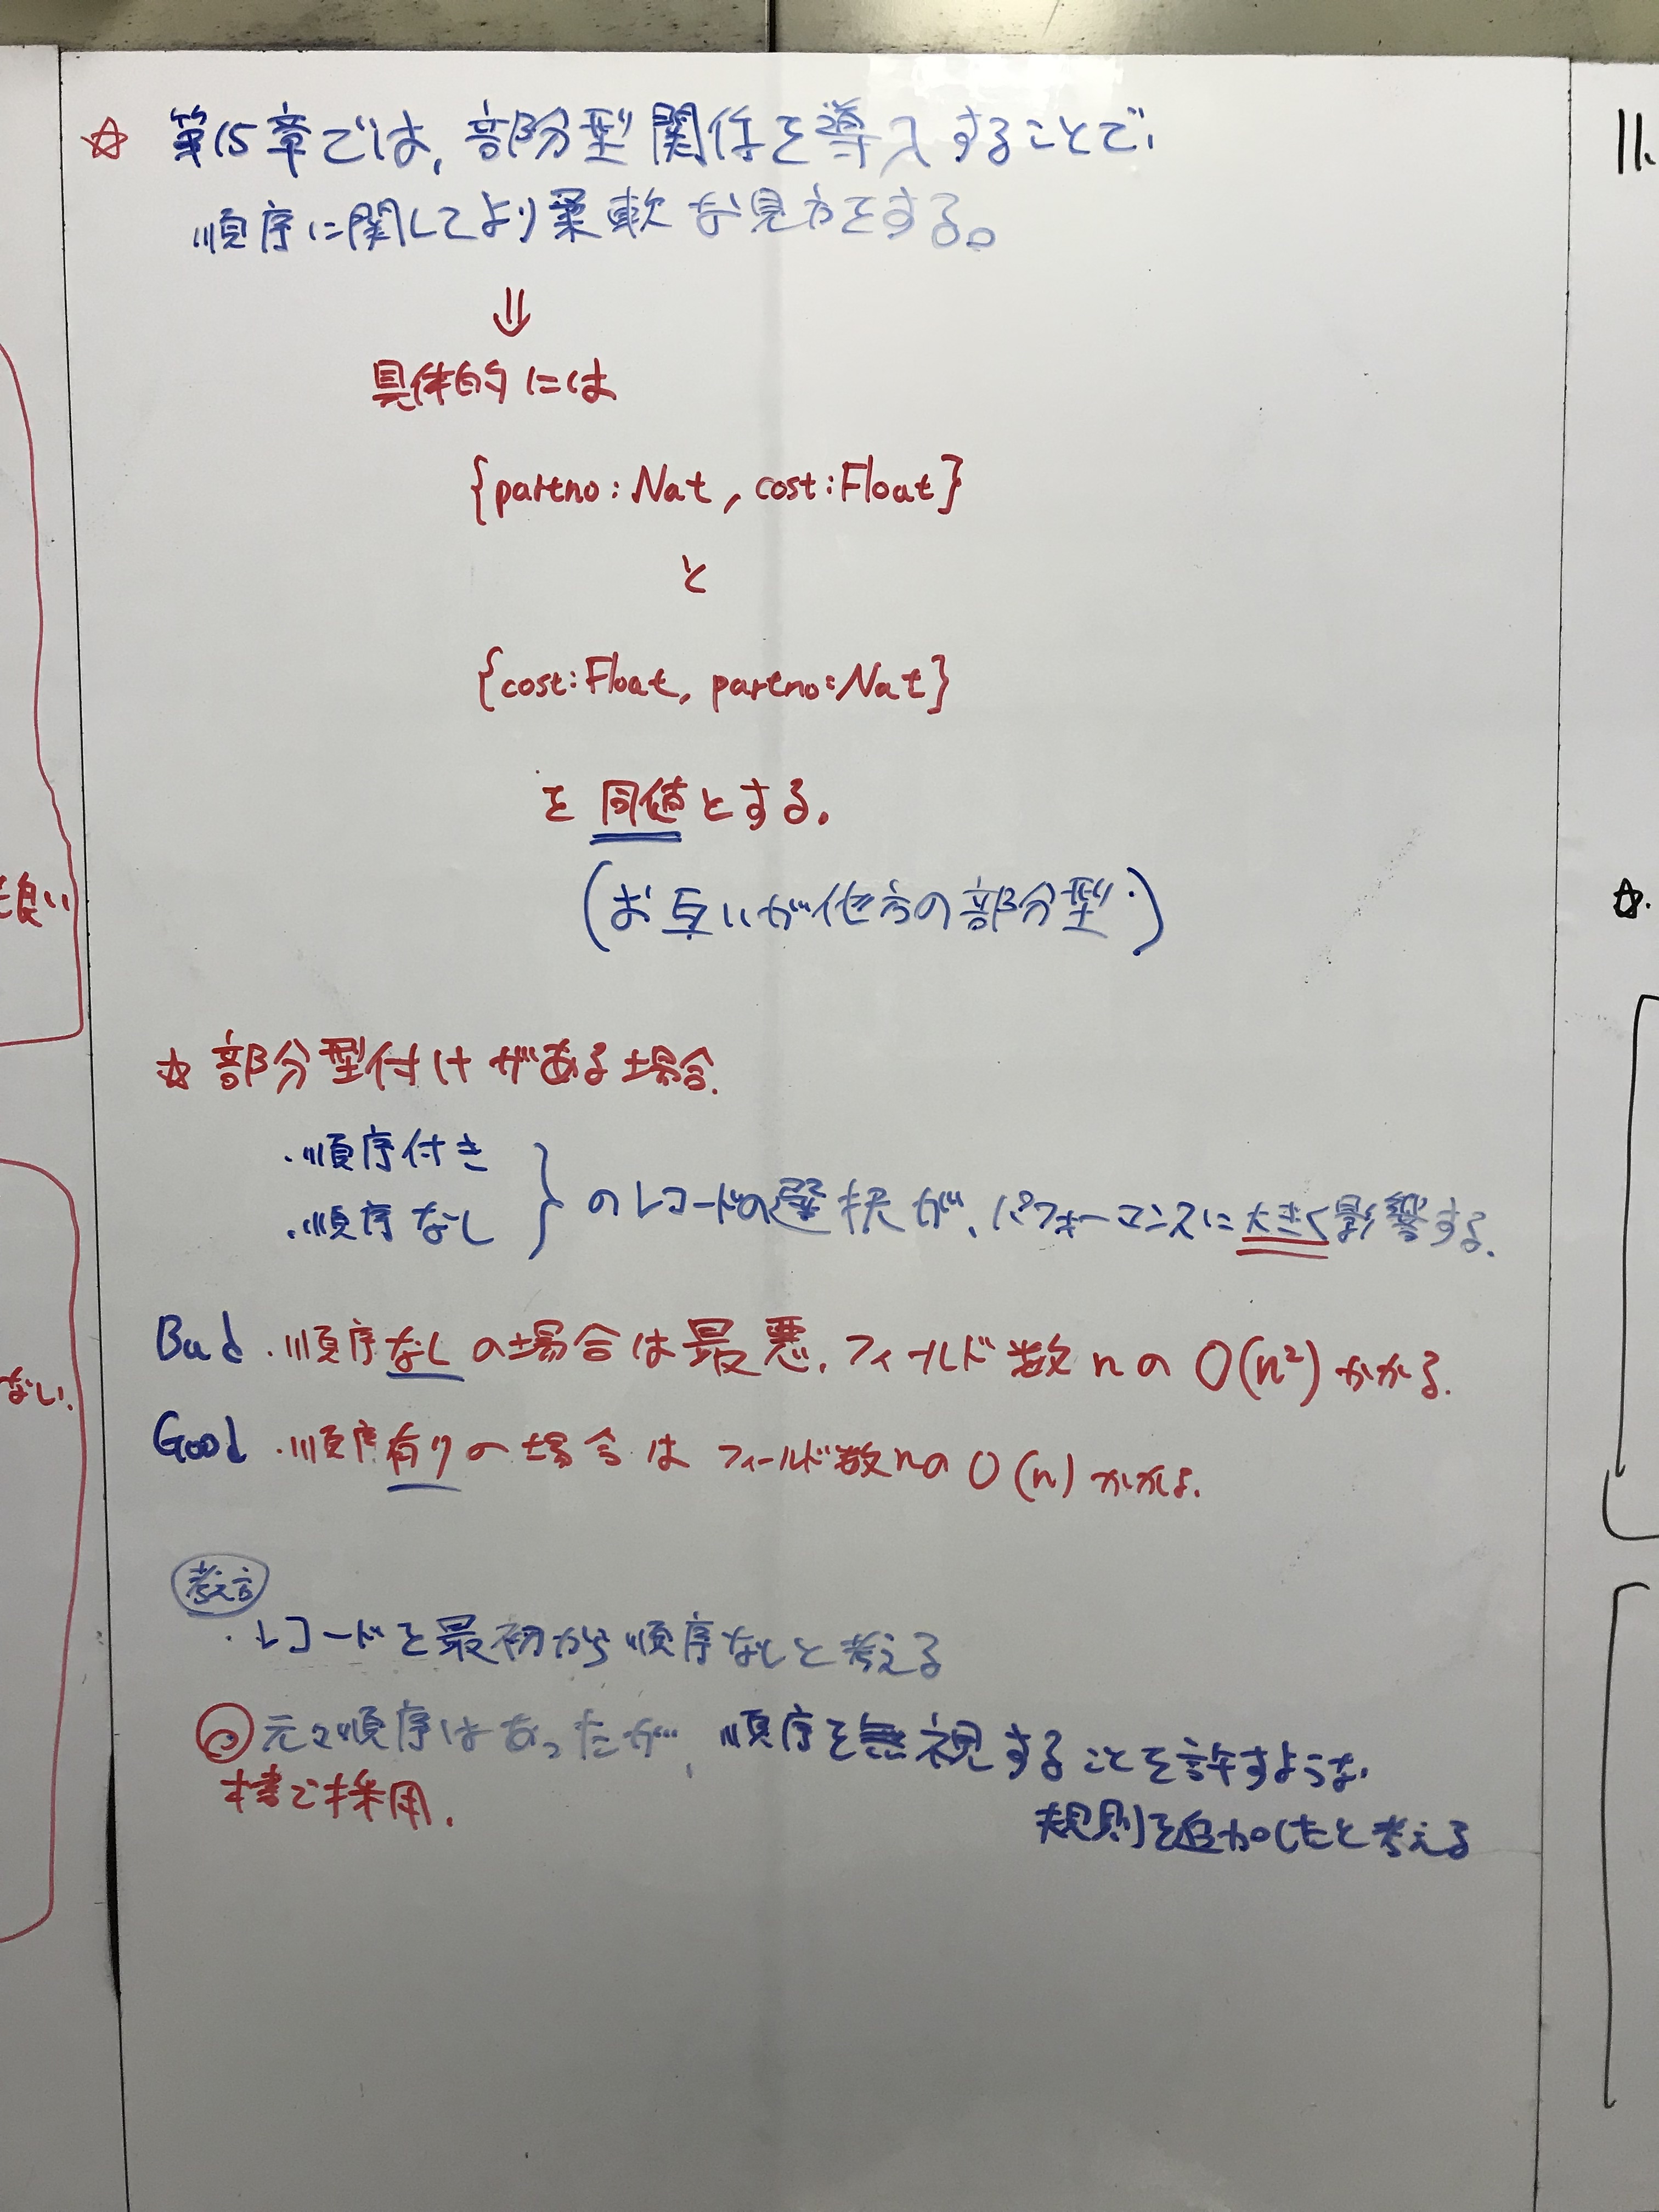 ☆ 第15章では、部分型関係を導入することで、
順序に関してより柔軟な見方をする。
⇓
具体的には
{partno:Nat, cost:Float}
と
{cost:Float, partno:Nat}
を同値とする。
(お互いが他方の部分型.)
☆ 部分型付けがある場合.
・順序付き
・順序なし } のレコードの選択が、パフォーマンスに大きく影響する.
Bad ・順序なしの場合は最悪、フィールド数nのO(n²)かかる.
Good ・順序有りの場合はフィールド数nのO(n)かかる.
考え方
・レコードを最初から順序なしと考える
元々順序はあったが、順序を無視することを許すような、
本書で採用.
規則を追加したと考える
も良い
ない.
11.
☆.